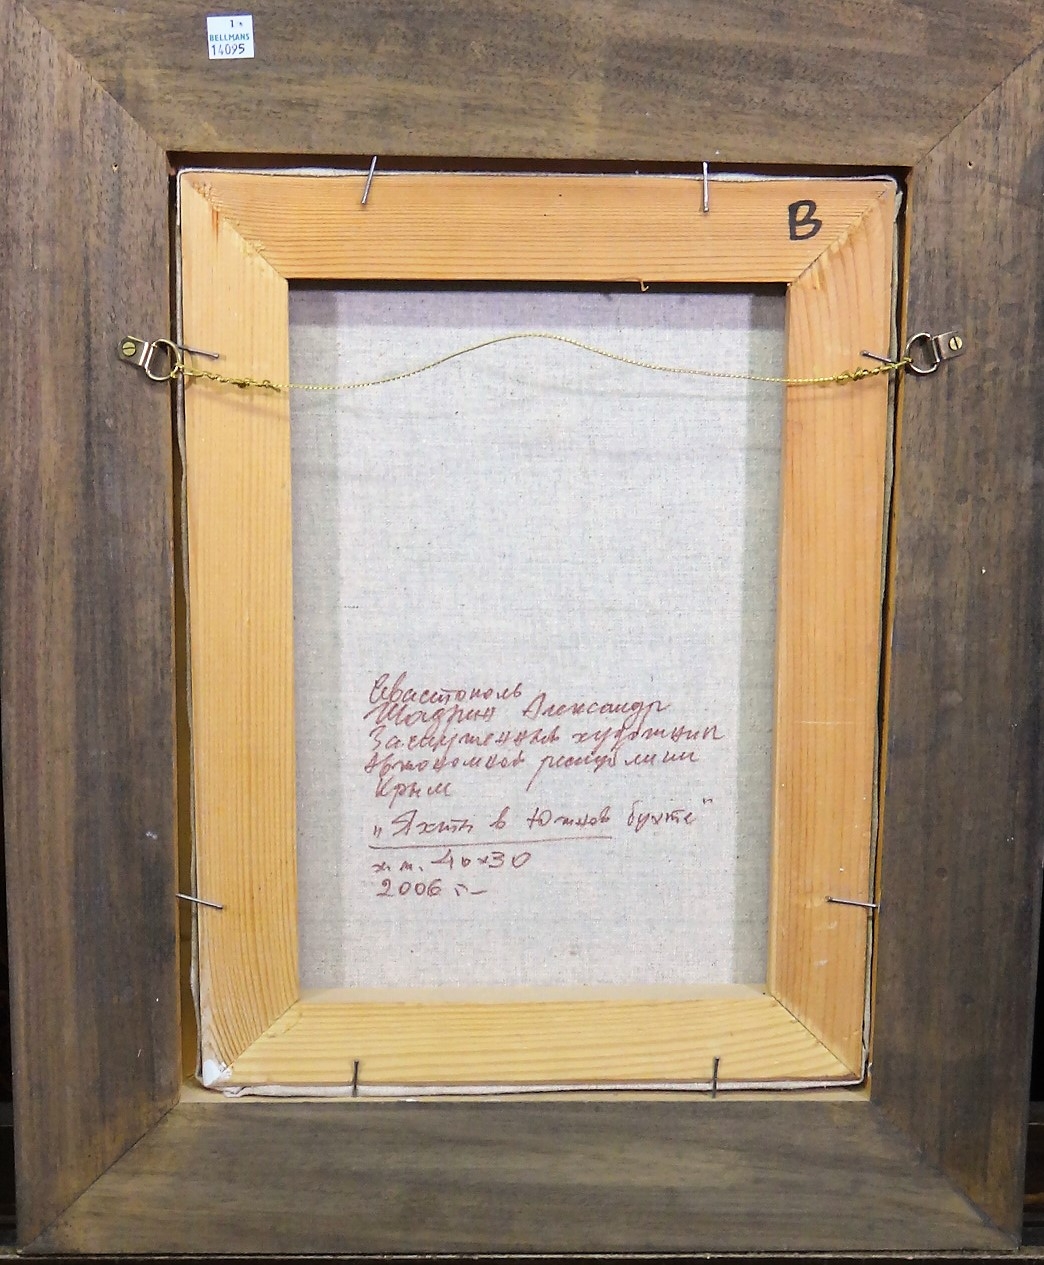 1
BELLMANS
14095
B
Севастополь
Шадрин Александр
Заслуженный художник
Автономной республики
Крым
"Яхты в Южной бухте"
х.м. 40х30
2006 г.